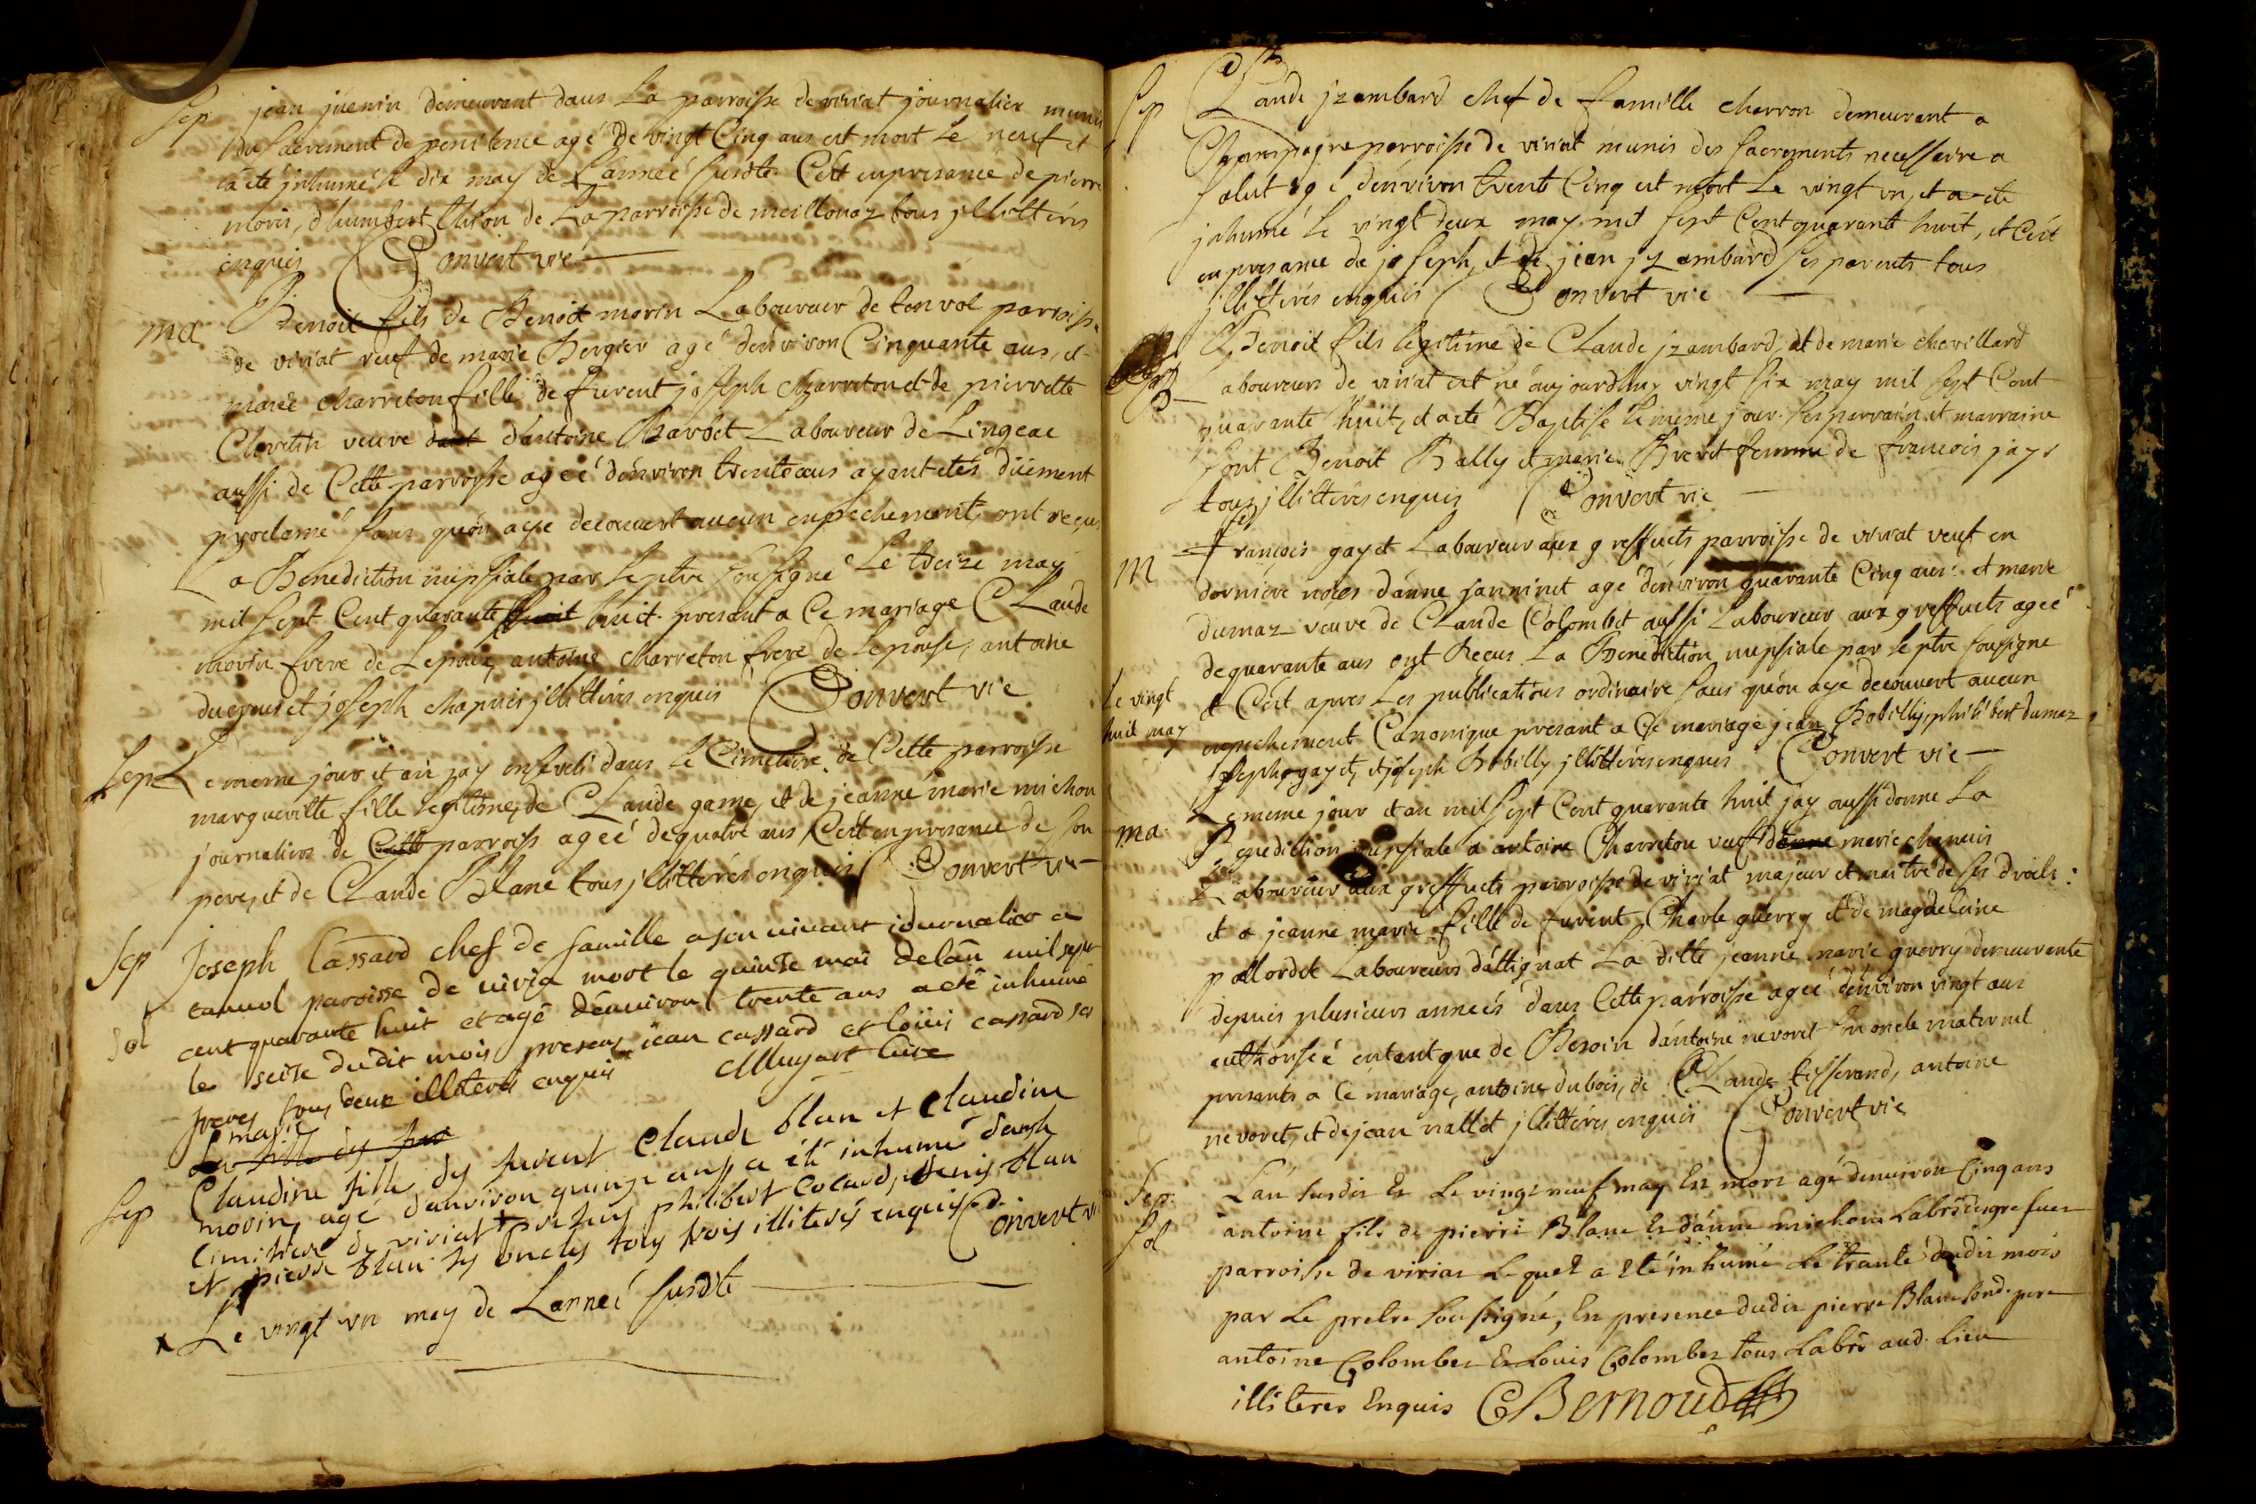 Sep jean juenin demeurant dans La parroisse de viriat journalier munis
du sacrement de penitence agé de vingt Cinq ans est mort le neuf et
a été jnhumé le dix may de L'année susdte C'est enpresance de pierre
morin, d'humbert de La parroisse de meillonaz tous jllittérés
enquis Convert vic
ma Benoit fils de Benoit morin Laboureur de tonvol parroisse
de viriat veuf de marie Bergier agé denviron Cinquante ans, et
marie charreton fille de furent joseph charreton et de pierrette
veuve d'antoine Barbet Laboureur de Lingeat
aussi de Cette parroisse ageé dénviron trente ans ayant étés düement
proclamé sans quón aye decouvert aucun enpechement, ont reçus
La Benediction nupsiale par le ptre sousigné Le treize may
mil sept Cent quarante huit presant a Ce mariage Claude
morin frere de Lepoux, antoine charreton frere de Lepouse, antoine
et joseph chapuis jllittérés enquis Convert vic
Sep Le meme jour et an jay enseveli dans le Cimetiere de Cette parroisse
margueritte fille legitime de Claude game, et de jeanne marie michon
journaliers de Cette parroiss ageé dequatre ans, C'est enpresance de son
pere, et de Claude Blanc tous jllittérés enquis Convert vic
Sep Joseph Cassard chef de famille a son vivant journalier a
sol tanvol paroisse de viria mort le quinse mai de lan mil sept
cent quarante huit et agé dénuiron trente ans a eté inhumé
le seise dudit mois presens jean cassard et loüis cassard ses
freres tous deux illiterés enquis Muyart Cure
marie
La fille du fut
Sep Claudine fille de furent Claude blan et Claudine
morin, age danviron quinze ans a été inhumé dans le
Cimitiere de viriat + presens philibert Cocard, denis blan
et pierre blan ses oncles tous trois illiterés enquis Convert vic
x Le vingt un may de Lanneé susdte
Sep Claude jzambard chef de famille charron demeurant a
Champagne parroisse de viriat munis des sacrements necessaire a
salut agé dénviron trente Cinq est mort Le vingt un, et a été
jnhumé le vingt deux may mil sept Cent quarante huit, et C'est
en presance de joseph, et de jean jzambard ses parents tous
jllittérés enquis Convert vic
Bap Benoit fils legitime de Claude jzambard, et de marie chevillard
Laboureurs de viriat est né aujourdhuy vingt six may mil sept Cent
quarante huit, et a eté Baptisé le meme jour. ses parrain et marraine
sont Benoit Bally et marie Brevet femme de francois jayr
tous jllittérés enquis Convert vic
M francois gayet Laboureur aux greffiets parroisse de viriat veuf en
derniere noces dánne janninet agé dénviron quarante Cinq ans: et marie
dumaz veuve de Claude Colombet aussi Laboureur aux greffiets ageé
dequarante ans ont Reçus La Benediction nupsiale par le ptre sousigné
Le vingt huit may et C'est apres Les publications ordinaire sans quón aye decouvert aucun
enpechement Canonique presant a Ce mariage jean Bobilly, philibert dumaz,
joseph gayet, et joseph Bobilly jllittérés enquis Convert vic
ma Le meme jour et an mil sept Cent quarante huit jay aussi donné La
Benediction nupsiale a antoine Charreton veuf d'anne marie chapuis
Laboureur aux greffiets parroisse de viriat majeur et maitre de ses droits:
et a jeanne marie fille de furent Charle guerry et de magdelaine
pallordet Laboureurs dáttignat La ditte jeanne marie guerry demeurante
depuis plusieurs années dans Cette parroisse ageé dénviron vingt ans
authoriseé entantque de Besoin dántoine nevoret son oncle maternel
presants a Ce mariage, antoine dubois, de Claude tisserand, antoine
nevoret, et de jean nallet jllittérés enquis Convert vic
Sep. Lán susdit & Le vingt neuf may Est mort agé denuiron Cinq ans
sol antoine fils de pierre Blanc & dánne michon Labrs desgrefues
parroisse de viriat Lequel a Eté inhumé Le trante dudit mois
par Le pretre soussigné, En presence dudit pierre Blanc sond. pere
antoine Colombet & Louis Colombet tous Labrs aud. Lieu
illiteres Enquis CBernoud